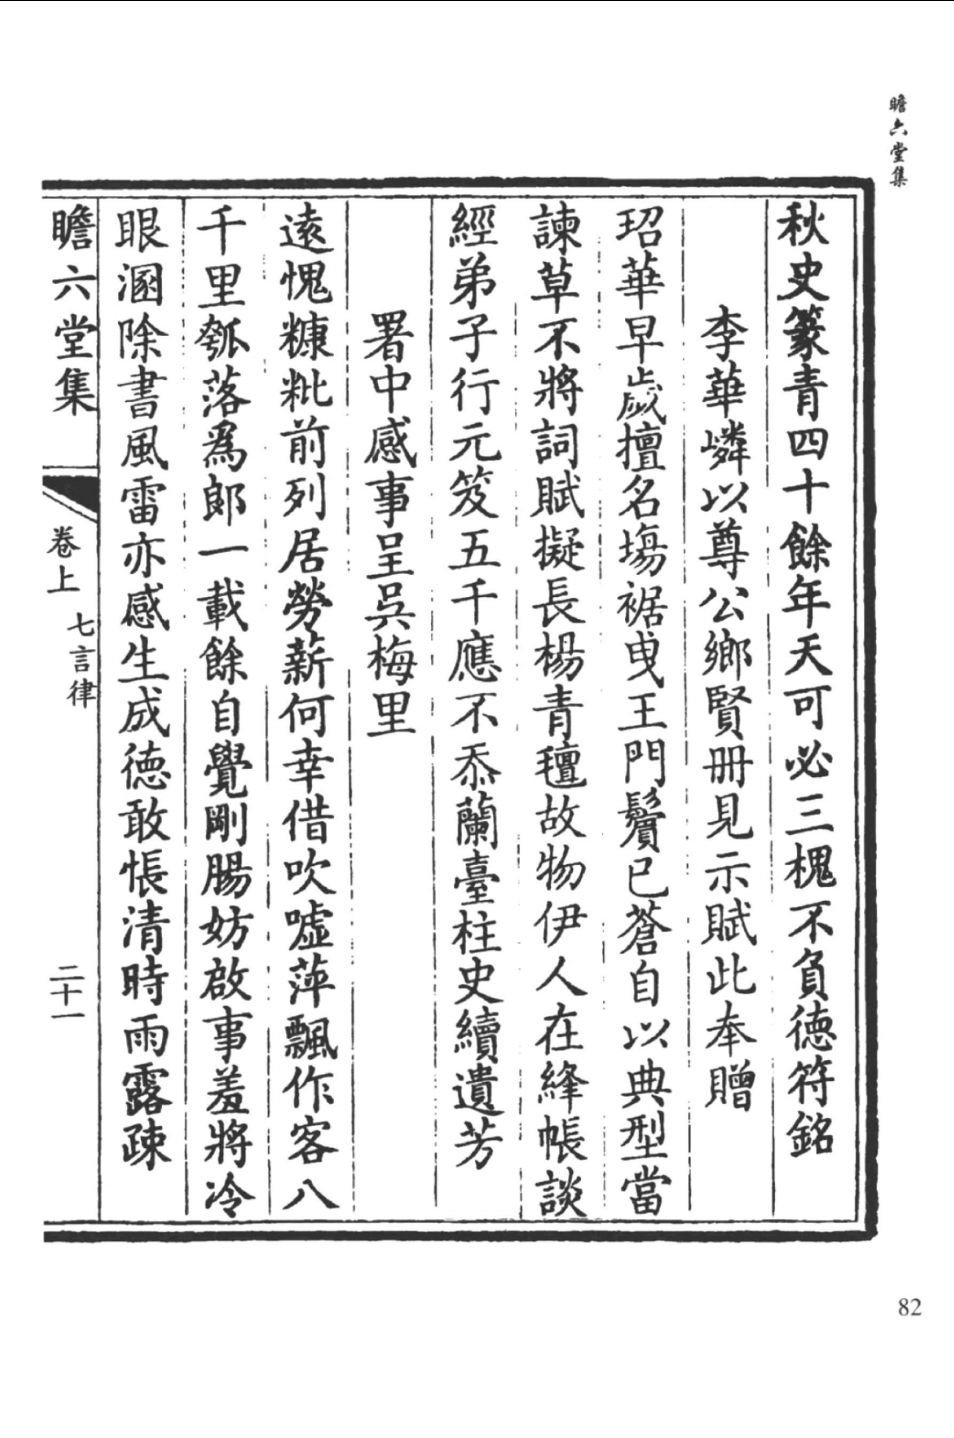 瞻六堂集
秋史篆青四十餘年天可必三槐不負德符銘
李華嶙以尊公鄉賢冊見示賦此奉贈
玿華早歲擅名塲裾曳王門鬢已蒼自以典型當
諫草不將詞賦擬長楊青氊故物伊人在絳帳談
經弟子行元笈五千應不忝蘭臺柱史續遺芳
署中感事呈吳梅里
遠愧糠粃前列居勞薪何幸借吹噓萍飄作客八
千里瓠落爲郎一載餘自覺剛腸妨啟事羞將冷
眼溷除書風雷亦感生成德敢悵清時雨露疎
瞻六堂集
卷上
七言律
二十一
82